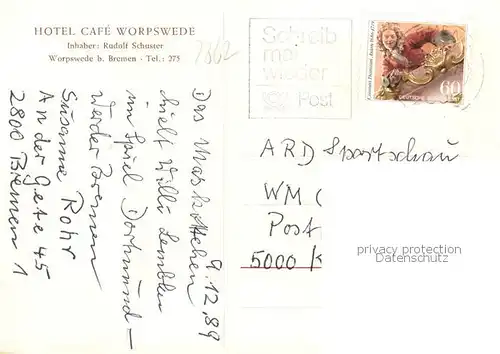 HOTEL CAFÉ WORPSWEDE
Inhaber: Rudolf Schuster
Worpswede b. Bremen - Tel.: 275
7862
9.12.89
Das Maskottchen
hielt Willi Lemke
im Spiel Dortmund –
Werder Bremen
Susanne Rohr
An der Gete 45
2800 Bremen 1
Schreib
mal
wieder
Post
60
DEUTSCHE BUNDESPOST
ARD Sportschau
WM (
Post
5000 K
privacy protection
Datenschutz